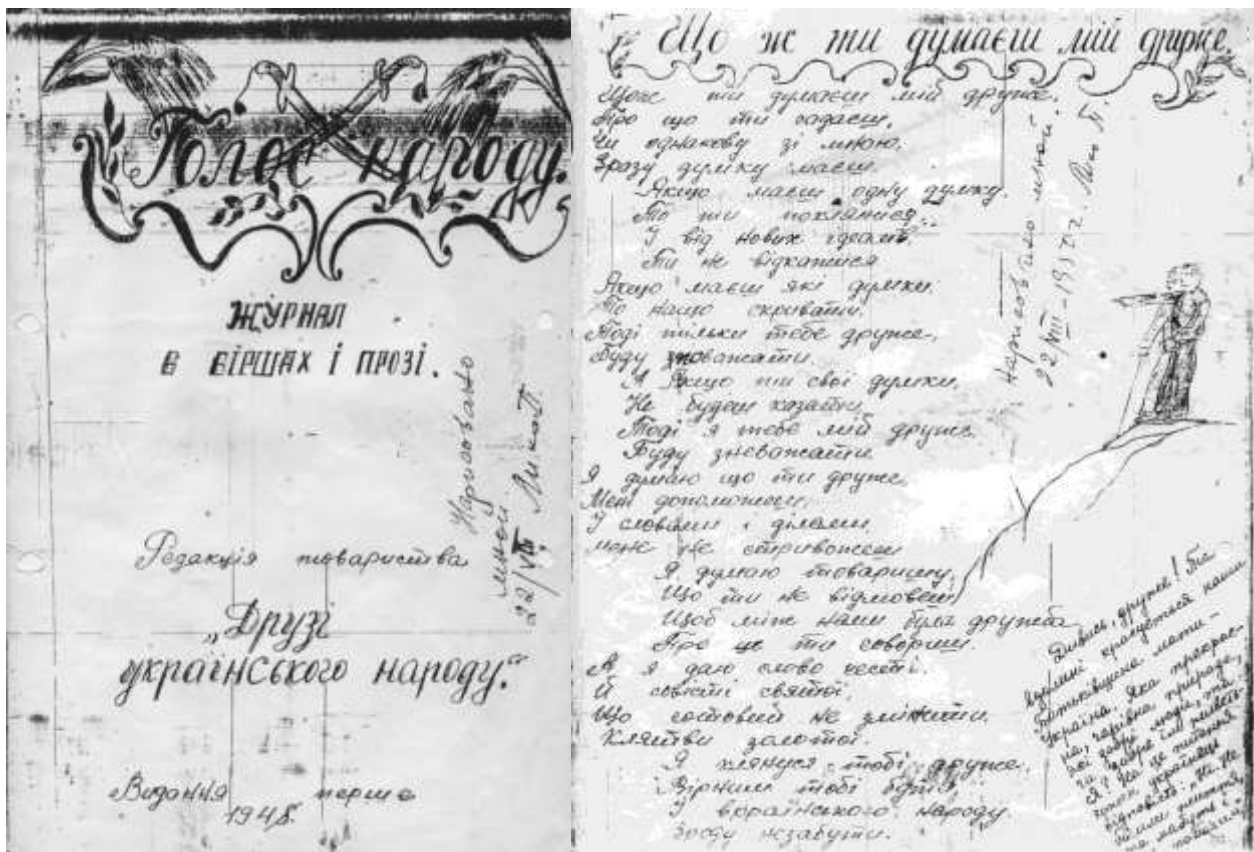 Голос народу.
ЖУРНАЛ
В ВІРШАХ І ПРОЗІ.
Нарисовано
мной
22/VIII
Редакція товариства
„Друзі
українського народу."
Видання перше
194
Що ж ти думаєш мій друже.
Щож ти думаєш мій друже,
Про що ти гадаєш,
Чи однакову зі мною,
Зразу думку маєш.
Якщо маєш одну думку.
То ти поклянися
І від нових ідеалів
Ти не відкатися
Якщо маєш які думки.
То нащо скривати.
Тоді тільки тебе друже,
Буду зноважати.
А Якщо ти свої думки,
Не будеш казати,
Тоді я тебе мій друже.
Буду зневожати
Я думаю що ти друже,
Мені допоможеш,
І словами і ділами
може не стривожеш
Я думаю товаришу,
Що ти не відмовеш
Щоб між нами була дружба
Про це ти говориш.
А я даю слово честі.
Й совісті святої,
Що готовий не змінити,
Клятви золотої.
Я клянуся тобі друже,
Вірним тобі бути
І вораїнського народу
Зроду незабути.
Нарисовано мной.
22/VIII-1950г.
Дивись, друже! Та
країна. Яка прекрас-
на, чарівна природа,
які добрі люди, та
чи добре їм живеть-
ся? На це питання
українці